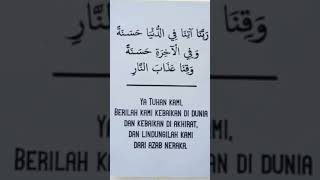 رَبَّنَا آتِنَا فِي الدُّنْيَا حَسَنَةً
وَفِي الْآخِرَةِ حَسَنَةً
وَقِنَا عَذَابَ النَّارِ
YA TUHAN KAMI,
BERILAH KAMI KEBAIKAN DI DUNIA
DAN KEBAIKAN DI AKHIRAT,
DAN LINDUNGILAH KAMI
DARI AZAB NERAKA.